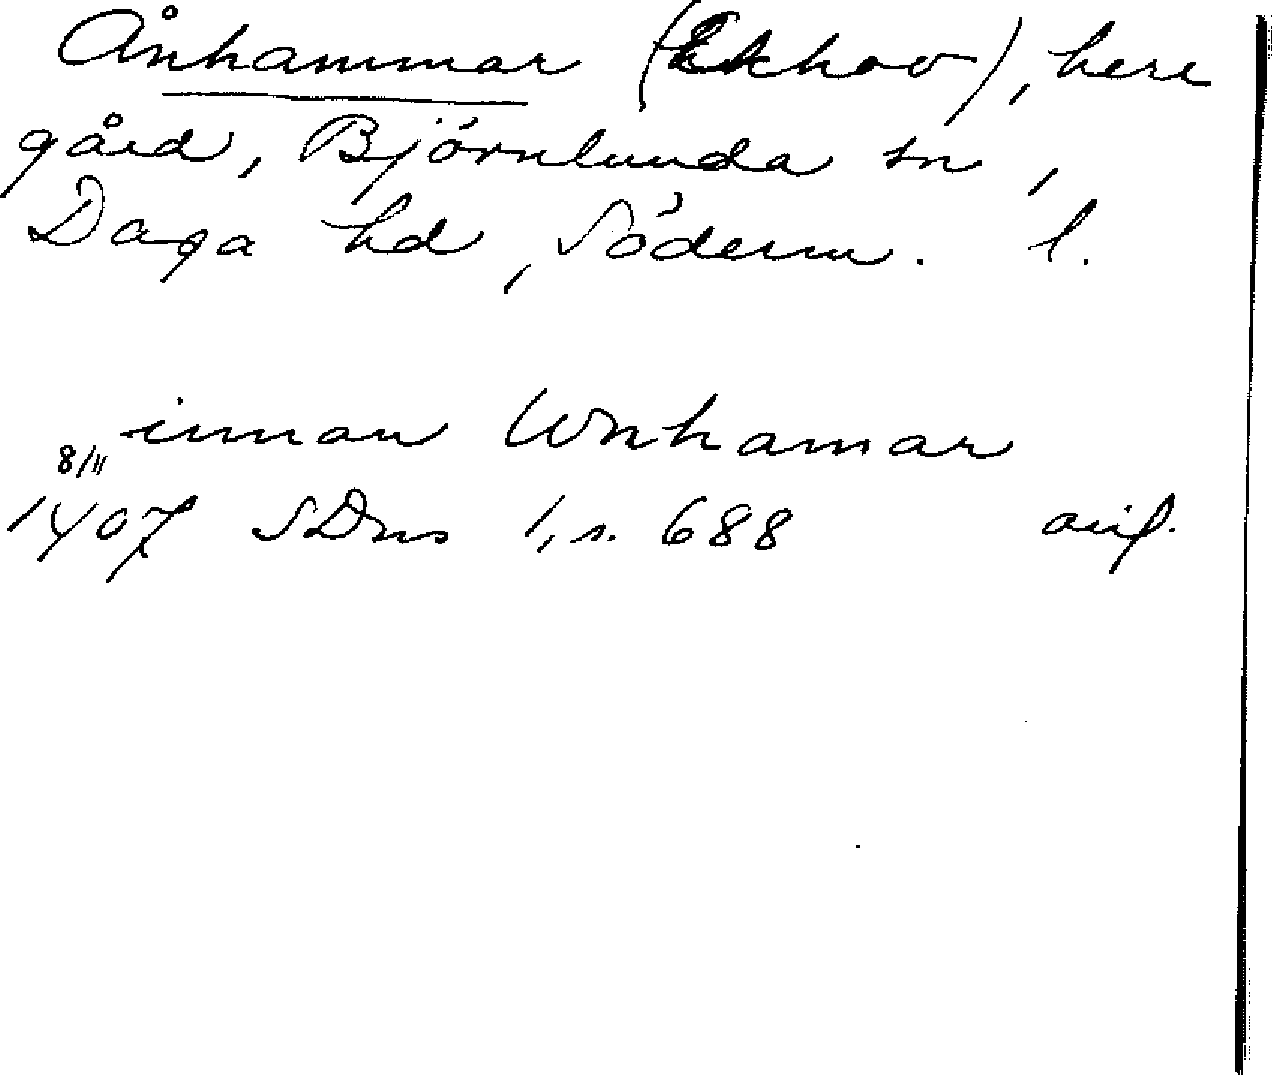 Ånhammar (Ekhov), here
gård, Björnlunda sn,
Daga hd, Söderm. l.
innan Wnhamar
8/11
1407 SDns 1, s. 688 avs.